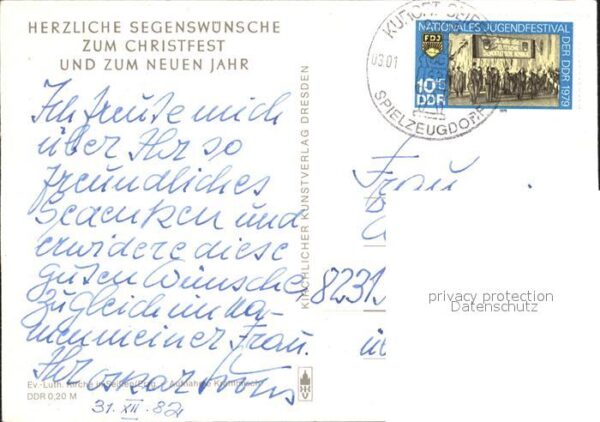 HERZLICHE SEGENSWÜNSCHE
ZUM CHRISTFEST
UND ZUM NEUEN JAHR
Ich freute mich
über Ihr so
freundliches
Gedenken und
erwidere diese
guten Wünsche
zugleich im Na-
men meiner Frau.
Ihr Oskar
Ev.-Luth. Kirche in Seiffen/Erzg. Aufnahme
DDR 0,20 M
31. XII. 82
KIRCHLICHER KUNSTVERLAG DRESDEN
NATIONALES JUGENDFESTIVAL
DER DDR 1979
FDJ
10+5
DDR
KURORT
03.01
SPIELZEUGDORF
Frau
8231
privacy protection
Datenschutz